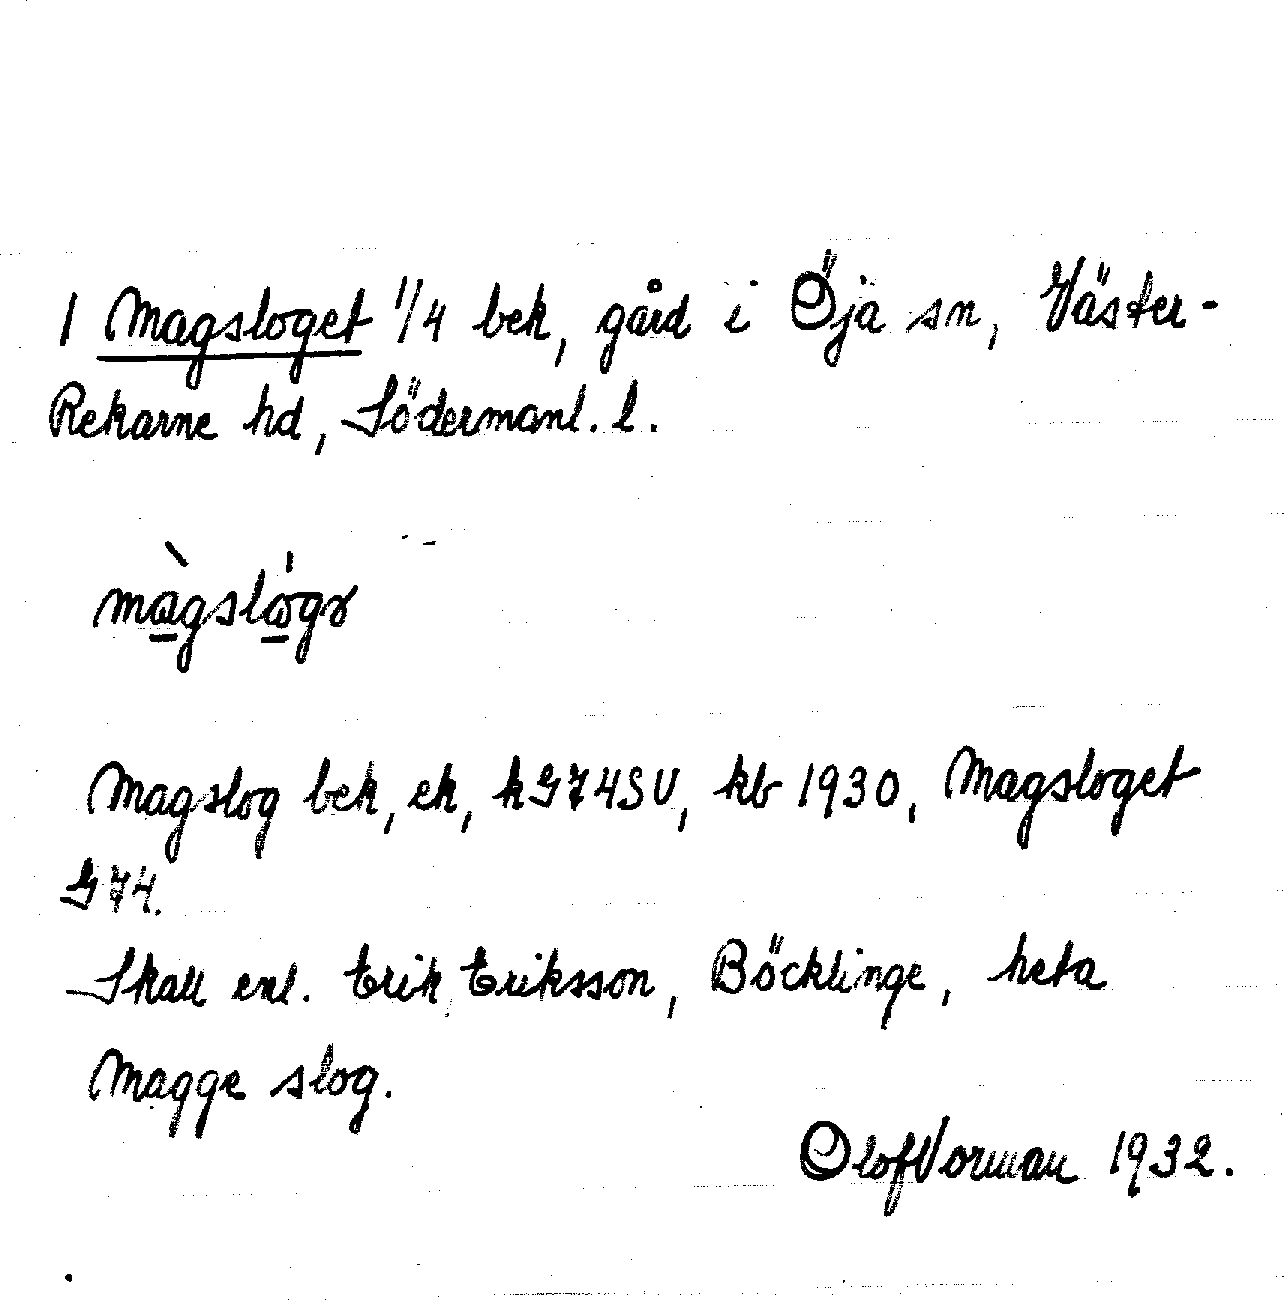 1 Magsloget 1/4 bek, gård i Öja sn, Väster-
Rekarne hd, Södermanl. l.
màgslógə
Magslog bek, ek, k G74SV, kb 1930, Magsloget
G74.
Skall enl. Erik Eriksson, Böcklinge, heta
Magge slog.
Olof Vorman 1932.